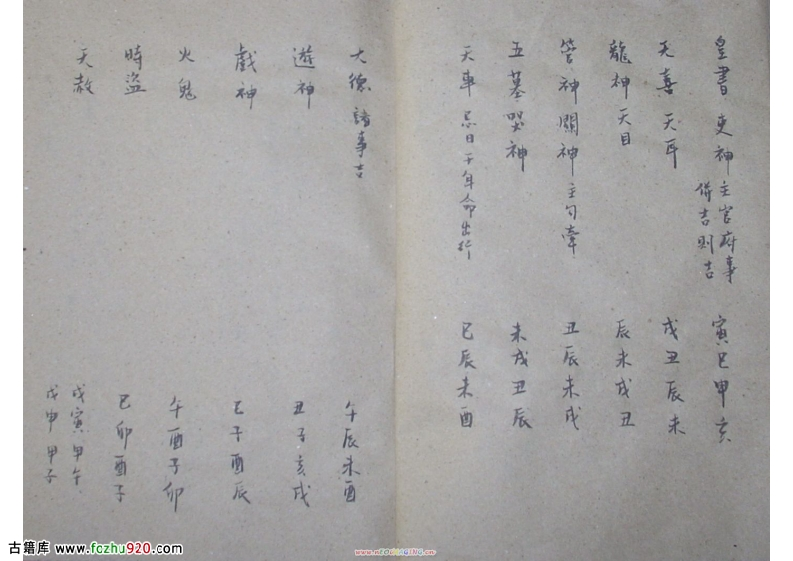 皇書 吏神 主官府事 寅巳甲亥
併吉則吉
天喜 天耳 戌丑辰未
龍神 天目 辰未戌丑
管神 關神 主勾牽 丑辰未戌
五墓 哭神 未戌丑辰
天車 忌日干年命出行 巳辰未酉
大德 諸事吉 午辰未酉
遊神 丑子亥戌
戲神 巳子酉辰
火鬼 午酉子卯
時盜 巳卯酉子
天赦 戊寅 甲午
戊申 甲子
古籍库 www.fczhu920.com